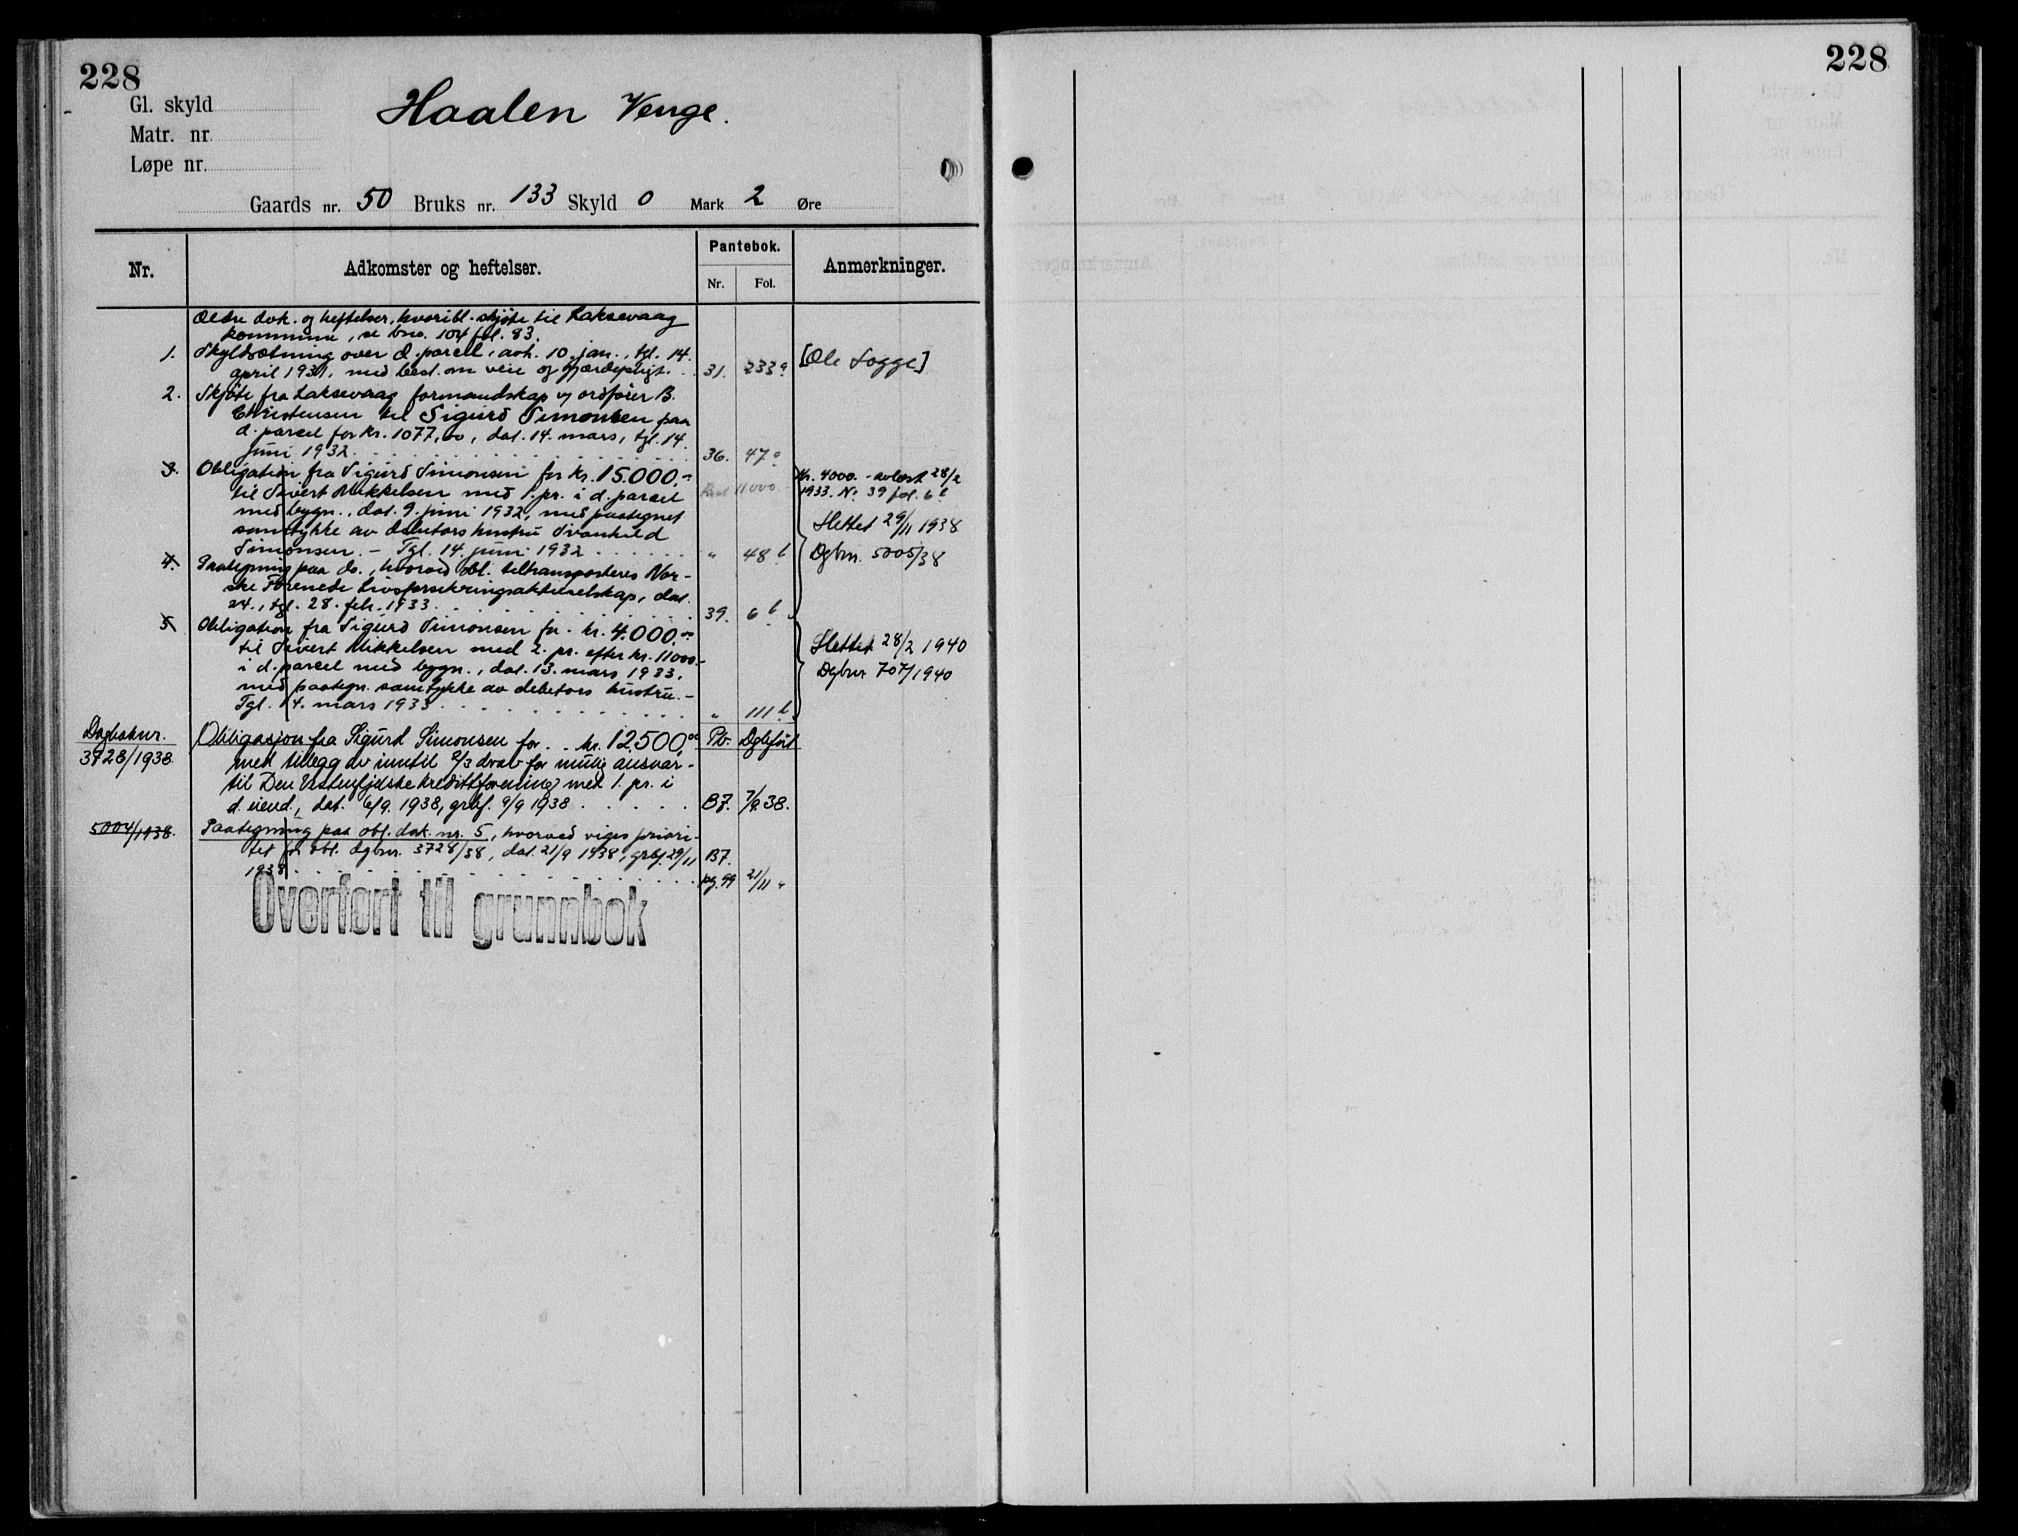 228
Gl. skyld
Matr. nr.
Løpe nr.
Haalen Venge.
Gaards nr. 50 Bruks nr. 133 Skyld 0 Mark 2 Øre
Nr.
Adkomster og heftelser.
Pantebok.
Nr.
Fol.
Anmerkninger.
Ældre dok. og heftelser, hvoribl. skjøte til Laksevaag
kommune, se bno. 104 fol. 83.
1. Skyldsætning over d. parcel, avh. 10. jan., tgl. 14.
april 1931, med best. om veie og gjærdepligt. 31. 233 a [Ole Logge]
2. Skjøte fra Laksevaag formandskap v/ ordfører B.
Christensen til Sigurd Simonsen paa
d. parcel for kr. 1077,00, dat. 14. mars, tgl. 14.
juni 1932 36. 47 a
3. Obligation fra Sigurd Simonsen for kr. 15.000.-
til Sivert Mikkelsen med 1. pr. i d. parcel
med bygn., dat. 9. juni 1932, med paategnet
samtykke av debitors hustru Svanhild
Simonsen. - Tgl. 14. juni 1932 " 48 b
Rest 11000.
Kr. 4000.- avlæst 28/2
1933. No 39 fol. 6 b
Slettet 29/11 1938
Dgbnr. 5005/38
4. Paategning paa do., hvorved obl. tiltransporteres Nor-
ske Forenede Livsforsikringsaktieselskap, dat.
24., tgl. 28. febr. 1933 39. 6 b
5. Obligation fra Sigurd Simonsen for kr. 4.000.-
til Sivert Mikkelsen med 2. pr. efter kr. 11000.-
i d. parcel med bygn., dat. 13. mars 1933,
med paategn. samtykke av debitors hustru. -
Tgl. 14. mars 1933 " 111 b
Slettet 28/2 1940
Dgbnr 707/1940
Dagboknr.
3728/1938.
Obligasjon fra Sigurd Simonsen for kr. 12.500,00 Pb. Dgbført
med tillegg av inntil 2/3 derav for mulig ansvar -
til Den Vestenfjeldske kredittforening med 1. pr. i
d. eiend., dat. 6/9. 1938, grbf. 9/9 1938 B7. 7/9 38.
5004/1938. Paategning paa obl. dok. nr. 5, hvorved viges priori-
tet for obl. dgbnr. 3728/38, dat. 21/9 1938, grbf. 29/11
1938 B7.
pg. 99 21/11 "
Overført til grunnbok
228